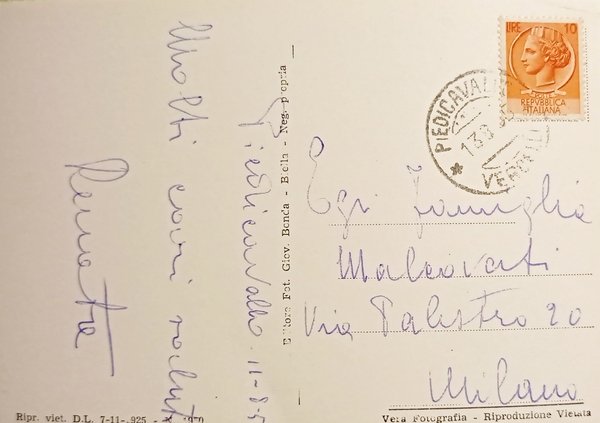 Molti cari saluti
Renata
Piedicavallo 11-8-5
Editore Fot. Giov. Bonda - Biella - Neg. propria
LIRE 10
REPVBBLICA
ITALIANA
PIEDICAVALLO
13.8
VERCELLI
Famiglia
Malcovati
Via Palestro 20
Milano
Ripr. viet. D.L. 7-11-.925
Vera Fotografia - Riproduzione Vietata